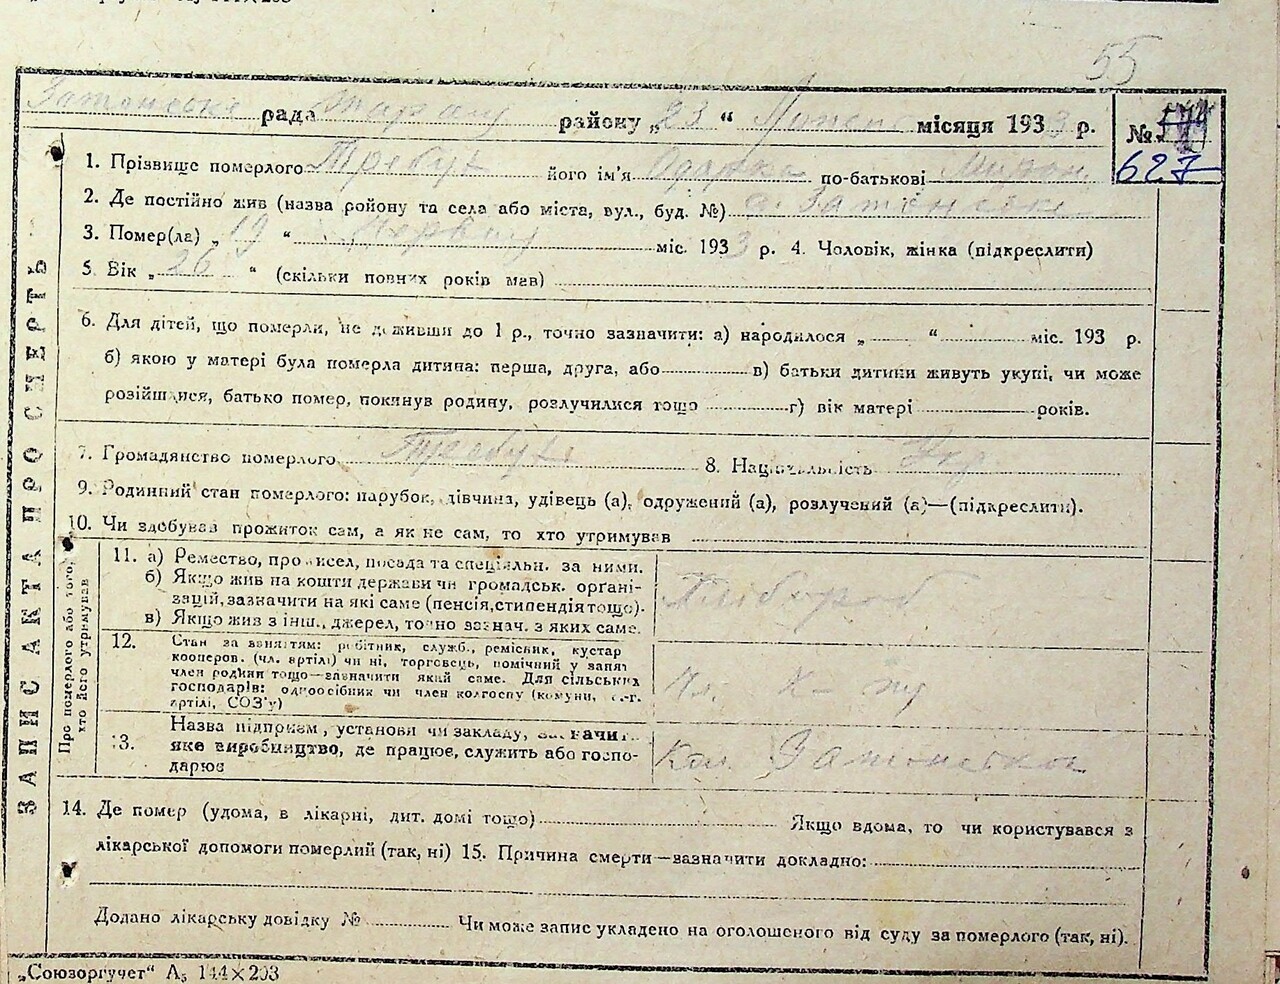 55
Затонська рада району „23“ Липень місяця 1933 р.
№ 627
1. Прізвище померлого Требух його ім'я Одарка по-батькові Мирон
2. Де постійно жив (назва району та села або міста, вул., буд. №) с. Затонське
3. Помер(ла) „19“ Червня міс. 1933 р. 4. Чоловік, жінка (підкреслити)
5. Вік „26“ (скільки повних років мав)
6. Для дітей, що померли, не доживши до 1 р., точно зазначити: а) народилося „ “ міс. 193 р.
б) якою у матері була померла дитина: перша, друга, або в) батьки дитини живуть укупі, чи може
розійшлися, батько помер, покинув родину, розлучилися тощо г) вік матері років.
7. Громадянство померлого Требух 8. Національність Укр.
9. Родинний стан померлого: парубок, дівчина, удівець (а), одружений (а), розлучений (а)—(підкреслити).
10. Чи здобував прожиток сам, а як не сам, то хто утримував
ЗАПИС АКТА ПРО СМЕРТЬ
Про померлого або того,
хто його утримував
11. а) Ремество, промисел, посада та спеціальн. за ними.
б) Якщо жив на кошти держави чи громадськ. органі-
зацій, зазначити на які саме (пенсія, стипендія тощо).
в) Якщо жив з інш. джерел, точно зазнач. з яких саме.
Хлібороб
12. Стан за заняттям: робітник, служб., ремісник, кустар
кооперов. (чл. артілі) чи ні, торговець, помічний у занят
член родини тощо—зазначити який саме. Для сільських
господарів: одноосібник чи член колгоспу (комуни, с.-г.
артілі, СОЗ'у)
Чл. К-пу
13. Назва підприєм., установи чи закладу, зазначит.
яке виробництво, де працює, служить або госпо-
дарює
Кол. Затонське
14. Де помер (удома, в лікарні, дит. домі тощо) Якщо вдома, то чи користувався з
лікарської допомоги померлий (так, ні) 15. Причина смерти—зазначити докладно:
Додано лікарську довідку № Чи може запис укладено на оголошеного від суду за померлого (так, ні).
„Союзоргучет“ А₅ 144×203